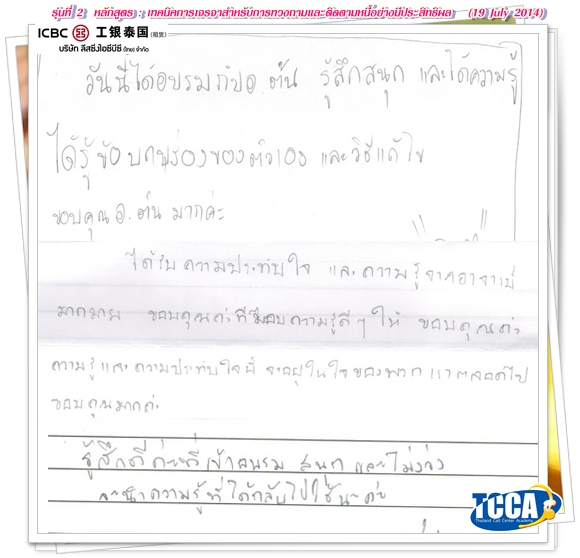 รุ่นที่ 2 หลักสูตร : เทคนิคการเจรจาสำหรับการทวงถามและติดตามหนี้อย่างมีประสิทธิผล (19 July 2014)
ICBC 工银泰国 (租赁)
บริษัท ลีสซิ่งไอซีบีซี (ไทย) จำกัด
วันนี้ได้อบรมกับอ.ต้น รู้สึกสนุก และได้ความรู้
ได้รู้ข้อบกพร่องของตัวเอง และวิธีแก้ไข
ขอบคุณอ.ต้น มากค่ะ
ได้รับความประทับใจ และความรู้จากอาจารย์
มากมาย ขอบคุณค่ะที่มอบความรู้ดีๆให้ ขอบคุณค่ะ
ความรู้และความประทับใจนี้ จะอยู่ในใจของพวกเราตลอดไป
ขอบคุณมากค่ะ
รู้สึกดีค่ะที่เข้าอบรม สนุก และไม่ง่วง
จะนำความรู้ที่ได้กลับไปใช้นะค่ะ
TCCA
Thailand Call Center Academy